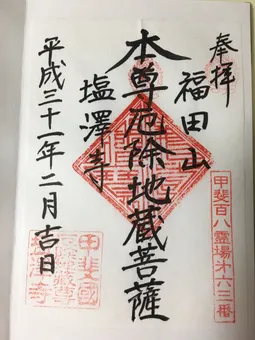 奉拝
福田山
甲斐百八霊場第六三番
本尊厄除地蔵菩薩
塩澤寺
平成三十一年二月吉日
甲斐國
塩澤寺